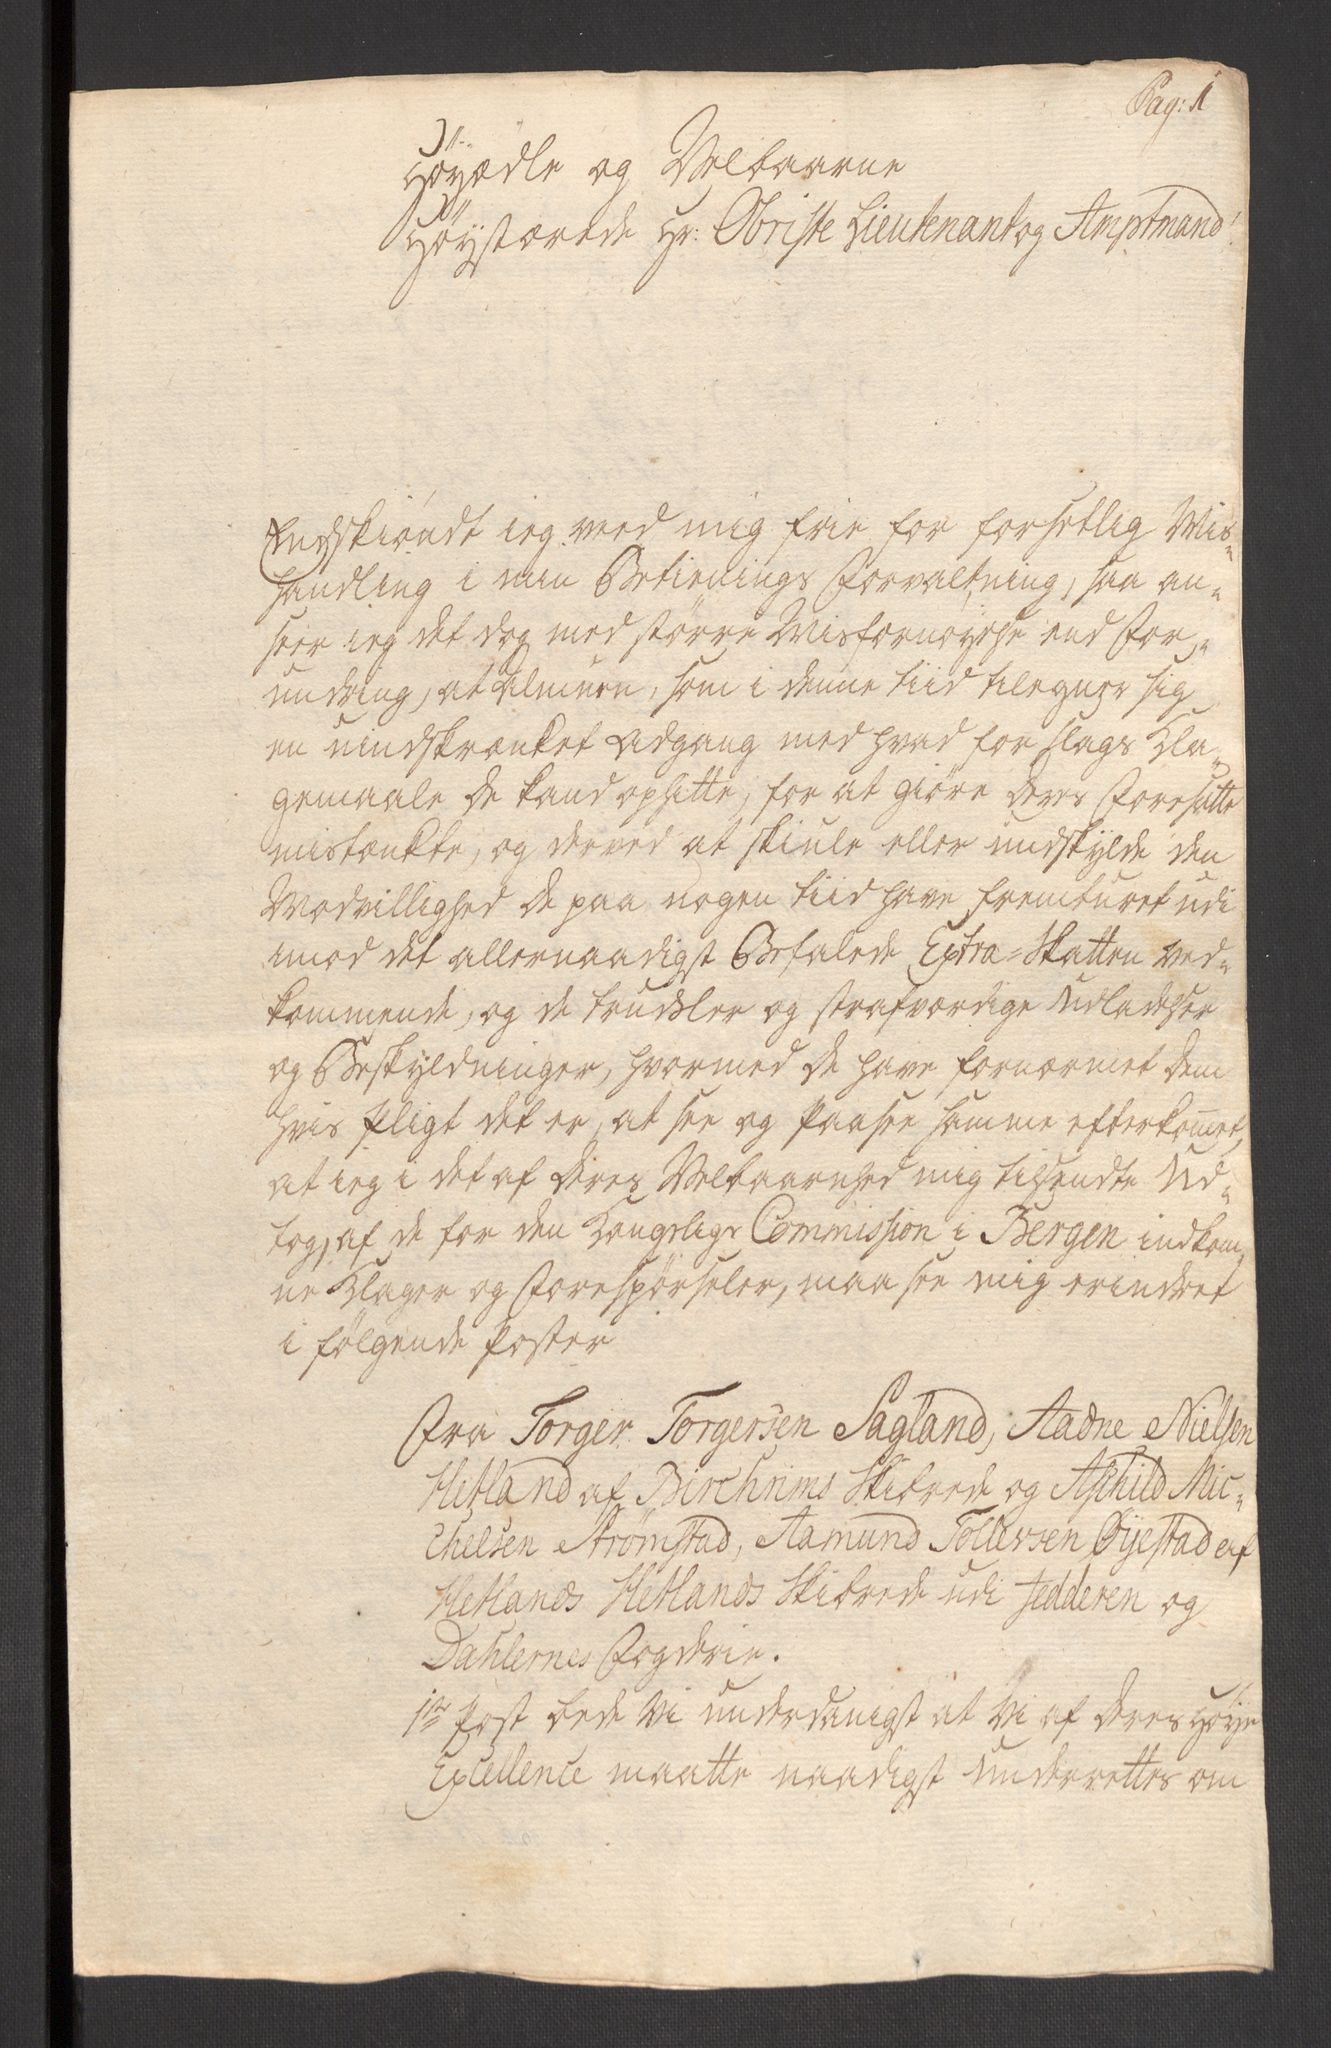 Pag: 1
Høyædle og Velbaarne
Høystærede Hr: Obriste Lieutenant og Amptmand!
Endskiøndt ieg veed mig frie for forsetlig Mis-
handling i min Betienings Forvaltning, saa an-
seer ieg det dog med større Misfornøyelse end For-
undring, at Almuen, som i denne tiid tilegner sig
en uindskrænket Adgang med hvad for slags Kla-
gemaale de kand ophitte, for at giøre deres Foresatte
mistænkte, og derved at skiule eller undskylde den
Modvillighed de paa nogen tiid have fremturet udi
imod det allernaadigst Befalede Extra-Skatten ved-
kommende, og de trudsler og strafværdige Udladelser
og Beskyldninger, hvormed de have fornærmet dem
hvis Pligt det er, at see og paasee samme efterkommet,
at ieg i det af Deres Velbaarenhed mig tilsendte Ud-
tog, af de for den Kongelige Commission i Bergen indkom-
ne Klager og Forespørseler, maa see mig erindret
i følgende Poster
Fra Torger Torgersen Sagland, Aadne Nielsen
Hetland af Birchrims Skibrede og Aschild Mic-
chelsen Strømstad, Aamund Tollevsen Øyestad af
Hetlands Hetlands Skibrede udi Jedderen og
Dahlernes Fogderie.
1te Post bede Vi underdanigst at Vi af Deres Høye
Excellence maatte naadigst underrettes om